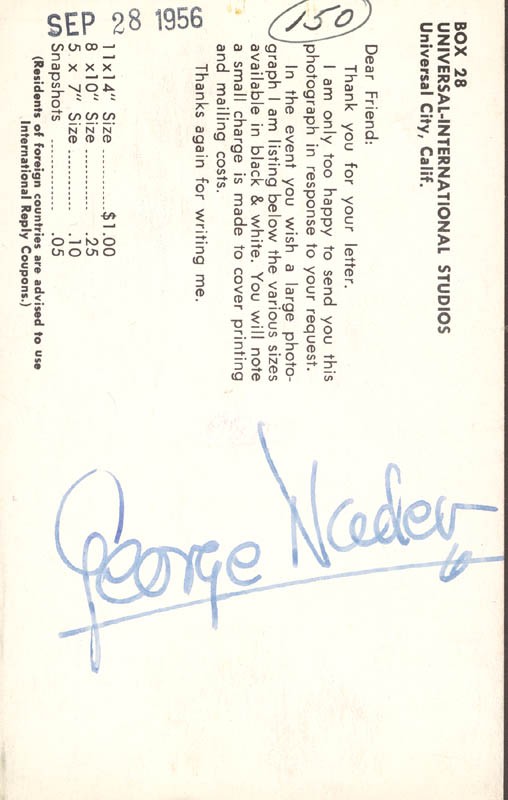 SEP 28 1956
150
BOX 28
UNIVERSAL-INTERNATIONAL STUDIOS
Universal City, Calif.
Dear Friend:
Thank you for your letter.
I am only too happy to send you this
photograph in response to your request.
In the event you wish a large photo-
graph I am listing below the various sizes
available in black & white. You will note
a small charge is made to cover printing
and mailing costs.
Thanks again for writing me.
11x14" Size ............$1.00
8 x10" Size ............ .25
5 x 7" Size ............ .10
Snapshots ............ .05
(Residents of foreign countries are advised to use
International Reply Coupons.)
George Nader